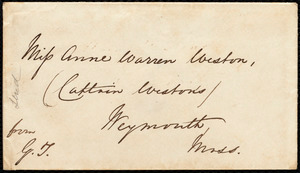 Miss Anne Warren Weston,
(Captain Westons)
Weymouth,
Mass.
from
G. T.